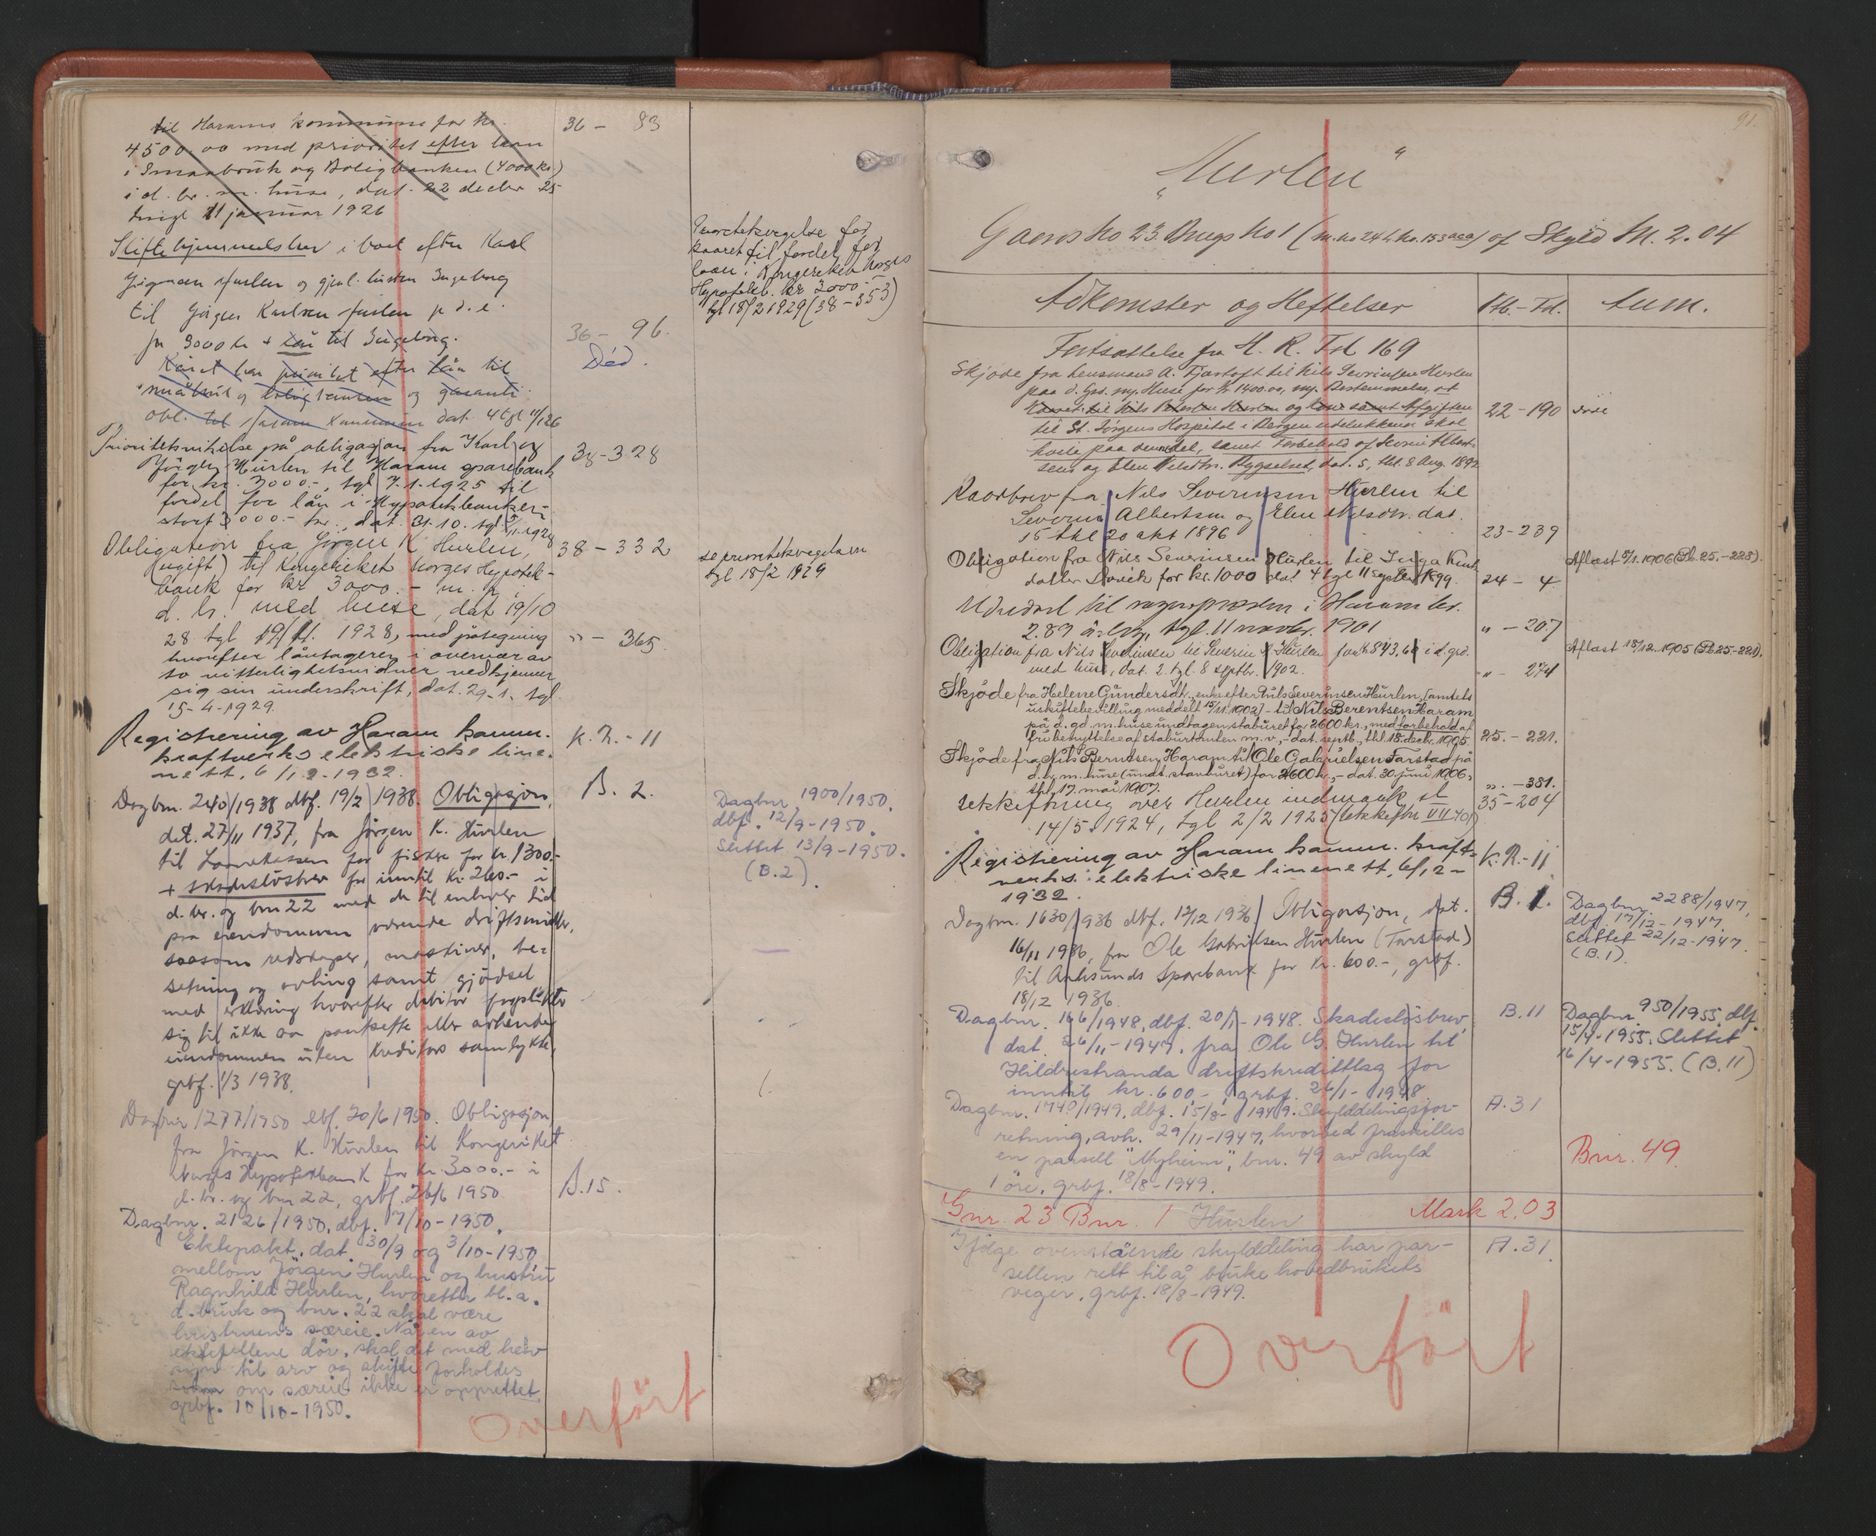 til Harams kommune for kr. 36 - 93
4500.00 med prioritet efter laan
i Smaabruk og Boligbanken (4000 kr)
i d. br. m. huse, dat. 22 decbr 25
tingl 11 januar 1926
Skiftehjemmelsbrev i boet efter Karl
Hurlen og Ingeborg
til Jörgen Karlsen Hurlen p. d. e.
for 3000 kr + kår til Ingeborg. 36 - 96.
Kåret har prioritet efter lån til Död.
småbruk og og garanti
obl. til Haram kommune dat. 4 tgl 11/1 26
Prioritetskvegelse for
kaaret til fordel for
laan i Kongeriket Norges
Hypotekb. kr 3000.-
tgl 18/2 1929 (38-353)
Prioritetsvikelse på obligasjon fra Karl og
Jörgen Hurlen til Haram sparebank 38-328
for kr. 3000.-, tgl 7.1.1925 til
fordel for lån i Hypotekbanken
stort 3000.- kr., dat. 31.10. tgl 1928
Obligation fra Jörgen K. Hurlen, 38-332
(ugift) til Kongeriket Norges Hypotek-
bank for kr 3000.- m. p. i
d. b. med huse, dat 19/10
28 tgl 1928, med påtegning " - 365.
hvorefter låntageren i overvær av
to vitterlighetsvidner vedkjenner
sig sin underskrift, dat. 29.1. tgl.
15-4-1929.
se prioritetskvegelsen
tgl 18/2 1929
Registrering av Haram komm. K.R.-11
kraftverks elektriske line-
nett, 6/12-1932.
Dagbnr. 240/1938 dbf. 19/2 1938. Obligasjon, B. 2.
dat. 27/11 1937, fra Jörgen K. Hurlen
til Lånekassen for fiskere for kr. 1300.-
+ skadeslösbrev for inntil kr. 260.- i
d. br. og bnr 22 med de til enhver tid
på eiendommen værende driftsmidler,
saasom redskaper, maskiner, be-
setning og avling samt gjödsel
med erklæring hvorefter debitor forplikter
sig til ikke aa pantsette eller avhende
eiendommen uten kreditors samtykke,
grbf. 1/3 1938.
Dagbnr. 1900/1950.
dbf. 12/9-1950.
Slettet 13/9-1950.
(B.2).
Dagbnr 1277/1950 dbf. 20/6 1950. Obligasjon
fra Jörgen K. Hurlen til Kongeriket
Norges Hypotekbank for kr. 3000.- i
d. br. og bnr 22, grbf. 26/6 1950. B.15.
Dagbnr. 2126/1950, dbf. 7/10-1950.
Ektepakt, dat. 30/9 og 3/10-1950
mellom Jörgen Hurlen og hustru
Ragnhild Hurlen, hvoretter bl. a.
d. bruk og bnr. 22 skal være
hustruens særeie. Når en av
ektefellene dör, skal det med hen-
syn til arv og skifte forholdes
som om særeie ikke er opprettet.
grbf. 10/10-1950.
Overfört
91.
"Hurlen"
Gaards No 23 Brugs No 1 (m. no 24 L. No. 153 aaa) af Skyld M. 2.04
Adkomster og Heftelser Pb.-Fol. Anm.
Fortsættelse fra A. R. Fol 169
Skjøde fra Lensmand A. Fjørtoft til Nils Severinsen Hurlen
paa d. Gd. m. Huse for kr 1400.00, m. Bestemmelse, at
Kaaret til Nils Hurlen og Kone samt Afgiften 22-190
til St. Jørgens Hospital i Bergen udelukkende skal
hvile paa denne del, samt Forbehold af Severin Alberts-
sens og Elen Nilsdtr. Byggselret, dat. 5, thl. 8 Aug. 1892
Kaarbrev fra Nils Severinsen Hurlen til
Severin Albertsen og Elen Nilsdtr. dat.
15 thl 20 okt 1896 23-239
Obligation fra Nils Severinsen Hurlen til Inga Knut-
datter for kr. 1000 dat 4 tgl 11 1899. 24-4
Aflæst 1906 (Pb. 25.-228).
Udredsel til sognepresten i Haram br.
2.83 årlig, tgl. 11 novbr. 1901 " - 207
Obligation fra Nils Severinsen til Severin Hurlen for kr 843,64 i d. gd.
med huse, dat. 2. tgl. 8 septbr. 1902. " - 274
Aflæst 18/12 1905 (Pb 25-221).
Skjöde fra Helene Gundersdt., enke efter Nils Severinsen Hurlen, [amtets
uskiftebevilling meddelt 15/11 1902] - til Nils Berentsen Haram
på d. gd. m. huse undtagen staburet for 2600 kr., med forbehold af
fri benyttelse af staburtomten m. v., - dat. septb., thl. 18. decbr. 1905. 25.-221.
Skjöde fra Nils Berntsen Haram til Ole Gabrielsen Tarstad på
d. b. m. huse (undt. staburet) for 2600 kr., - dat. 30. juni 1906,
thl. 17. mai 1907. ".-381.
Utskiftning over Hurlen indmark sl 35-204
14/5 1924, tgl 2/2 1925
Registrering av Haram komm. kraft- K.R.-11
verks elektriske linenett, 6/12-
1932.
Dagbnr. 1630/1936 dbf. 12/12 1936 Obligasjon, dat. B. 1.
16/11 1936, fra Ole Gabrielsen Hurlen (Tarstad)
til Aalesunds Sparebank for kr. 600.-, grbf.
18/12 1936.
Dagbnr. 2288/1947,
dbf. 17/12-1947.
Slettet 22/12-1947.
(B.1).
Dagbnr. 166/1948, dbf. 20/1-1948. Skadeslösbrev, B.11
dat. 26/11-1947, fra Ole G. Hurlen til
Hildrestranda driftskredittlag for
inntil kr. 600.-, grbf. 26/1-1948.
Dagbnr. 950/1955, dbf.
15/4-1955. Slettet
16/4-1955. (B.11)
Dagbnr. 1740/1949, dbf. 15/8-1949. Skylddelingsfor- A.31
retning, avh. 29/11-1947, hvorved fraskilles
en parsell "Nyheim", bnr. 49 av skyld Bnr. 49.
1 öre, grbf. 18/8-1949.
Gnr. 23 Bnr. 1 Hurlen Mark 2.03
Ifölge ovenstående skylddeling har par- A.31
sellen rett til å bruke hovedbrukets
veger, grbf. 18/8-1949.
Overfört